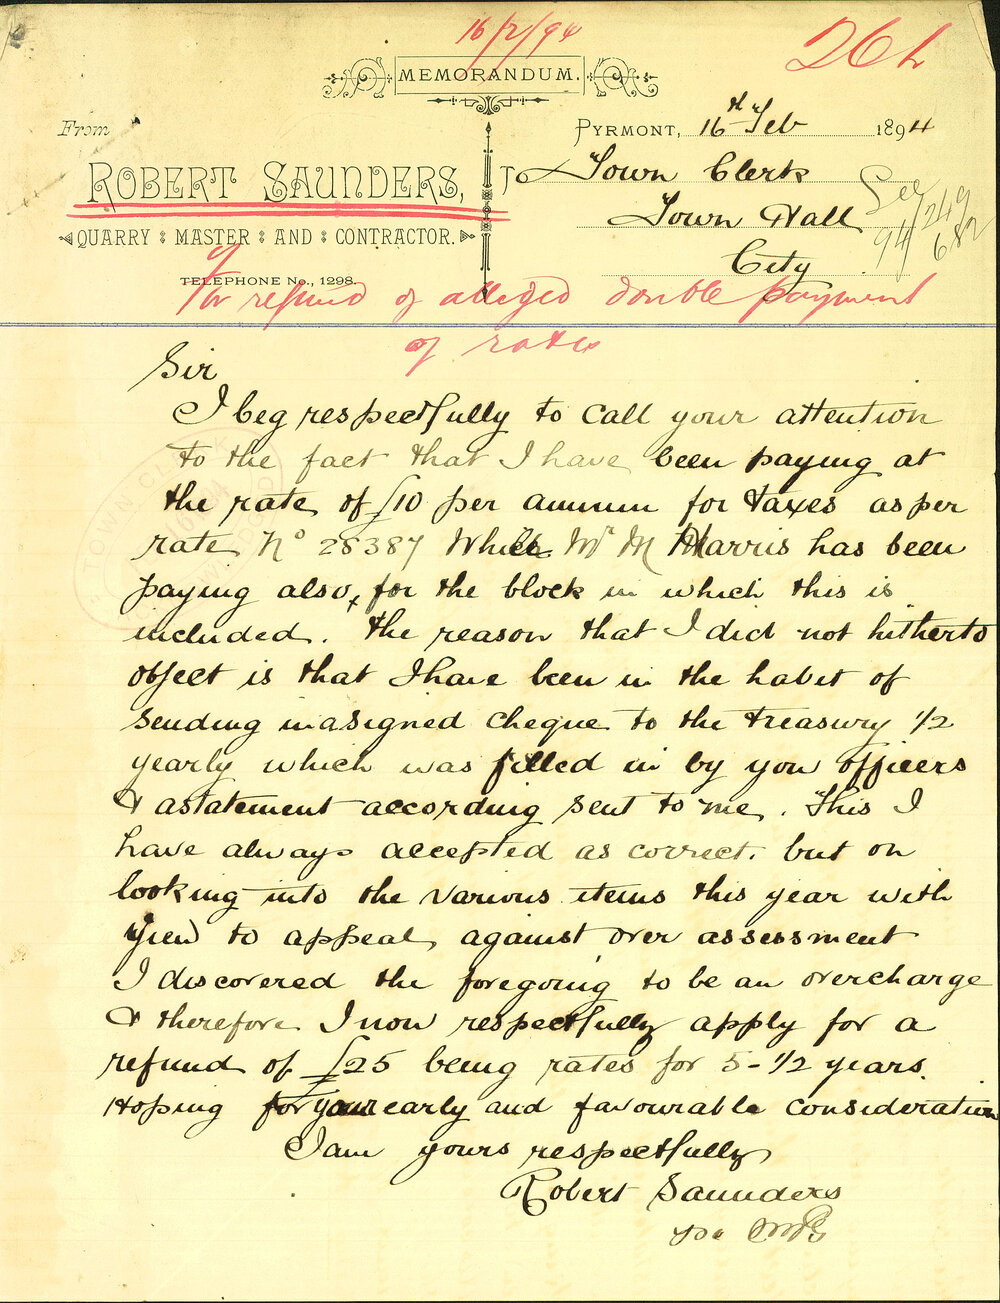 16/2/94
26h
MEMORANDUM.
From
PYRMONT, 16th Feb 1894
ROBERT SAUNDERS,
QUARRY MASTER AND CONTRACTOR.
TELEPHONE No., 1298.
To Town Clerk
Town Hall
City
See
94/249
682
for refund of alleged double payment
of rates
TOWN CLERK
Sir
I beg respectfully to call your attention
to the fact that I have been paying at
the rate of £10 per annum for taxes as per
rate No 28387 While Mr M Harris has been
paying also, for the block in which this is
included. the reason that I did not hitherto
object is that I have been in the habit of
sending in a signed cheque to the treasury 1/2
yearly which was filled in by you officers
& a statement according sent to me. This I
have always accepted as correct. but on
looking into the various items this year with
view to appeal against over assessment
I discovered the foregoing to be an overcharge
& therefore I now respectfully apply for a
refund of £25 being rates for 5-1/2 years.
Hoping for your early and favourable consideration
I am yours respectfully
Robert Saunders